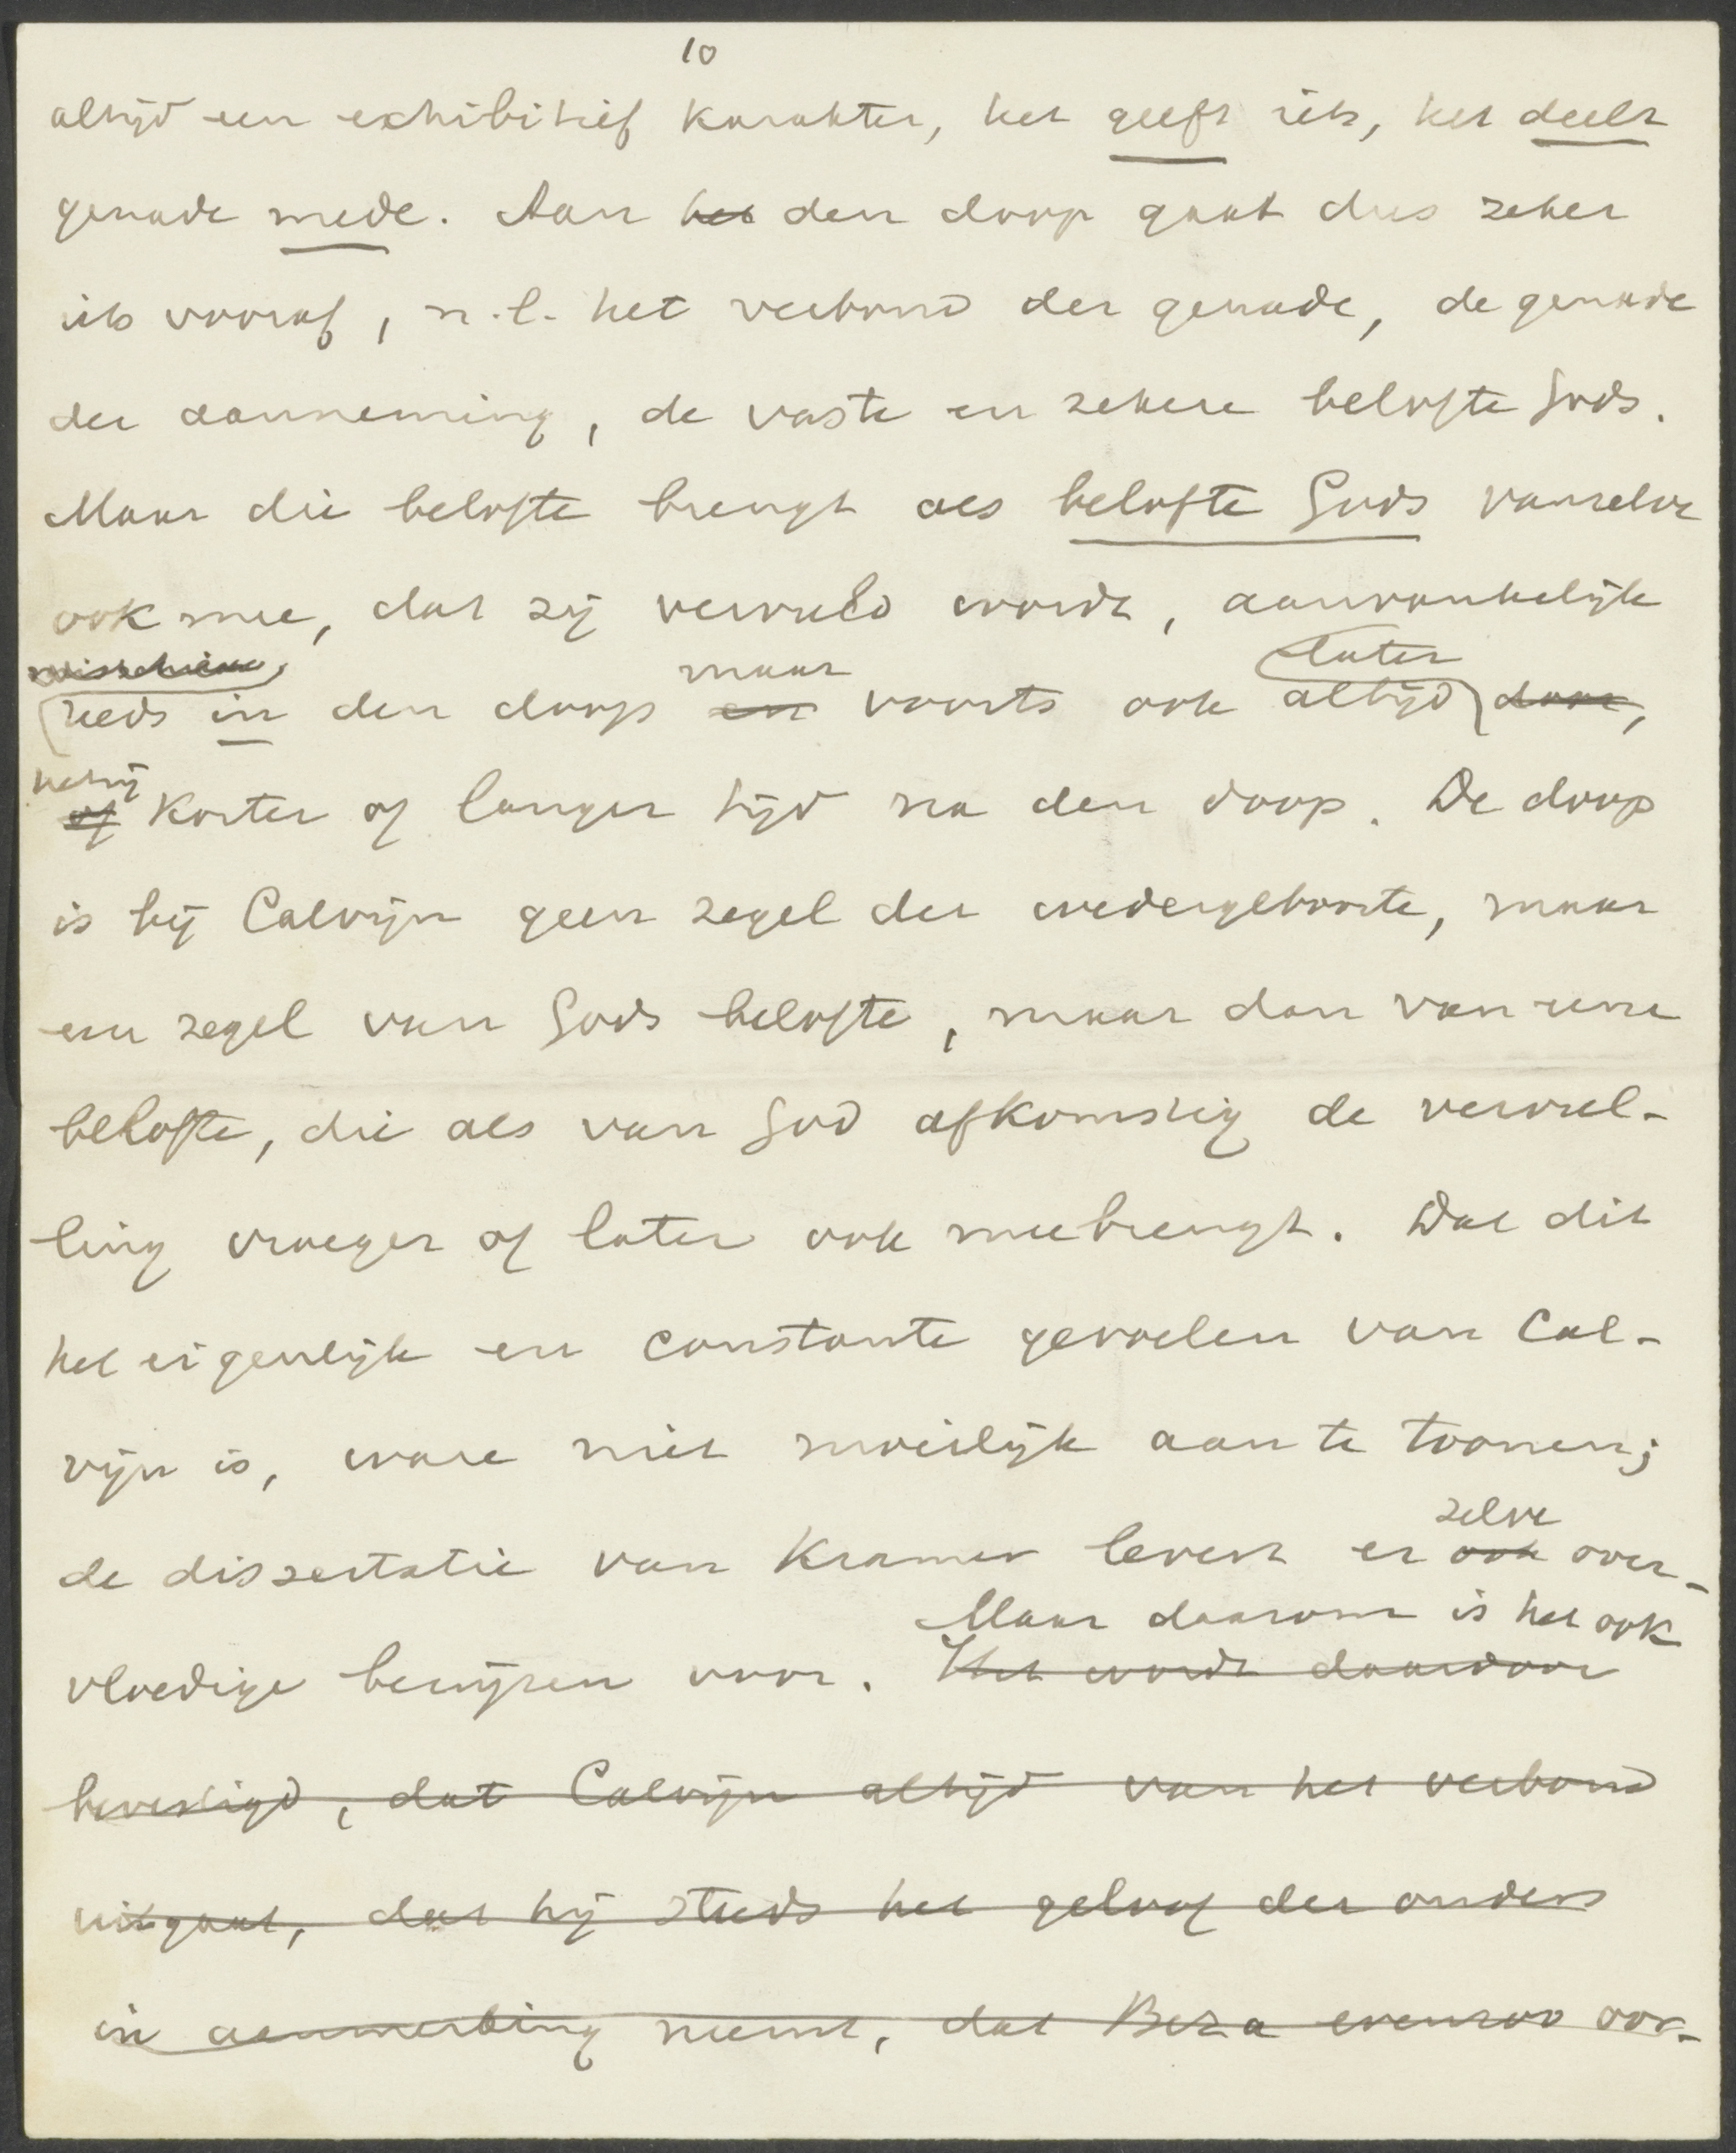 10
altijd een exhibitief karakter, het geeft iets, het deelt
genade mede. Aan het den doop gaat dus zeker
iets vooraf, n.l. het verbond der genade, de genade
der aanneming, de vaste en zekere belofte Gods.
Maar die belofte brengt als belofte Gods vanzelve
ook mee, dat zij vervuld wordt, aanvankelijk
misschien maar later
reeds in den doop en voorts ook altijd door,
hetzij
of korter of langer tijd na den doop. De doop
is bij Calvijn geen zegel der wedergeboorte, maar
een zegel van Gods belofte, maar dan van eene
belofte, die als van God afkomstig de vervul-
ling vroeger of later ook meebrengt. Dat dit
het eigenlijk en constante gevoelen van Cal-
vijn is, ware niet moeilijk aan te toonen;
zelve
de dissertatie van Kramer levert er ook over-
Maar daarom is het ook
vloedige bewijzen voor. Het wordt daardoor
bevestigd, dat Calvijn altijd van het verbond
uitgaat, dat hij steeds het geloof der ouders
in aanmerking neemt, dat Beza evenzoo oor-